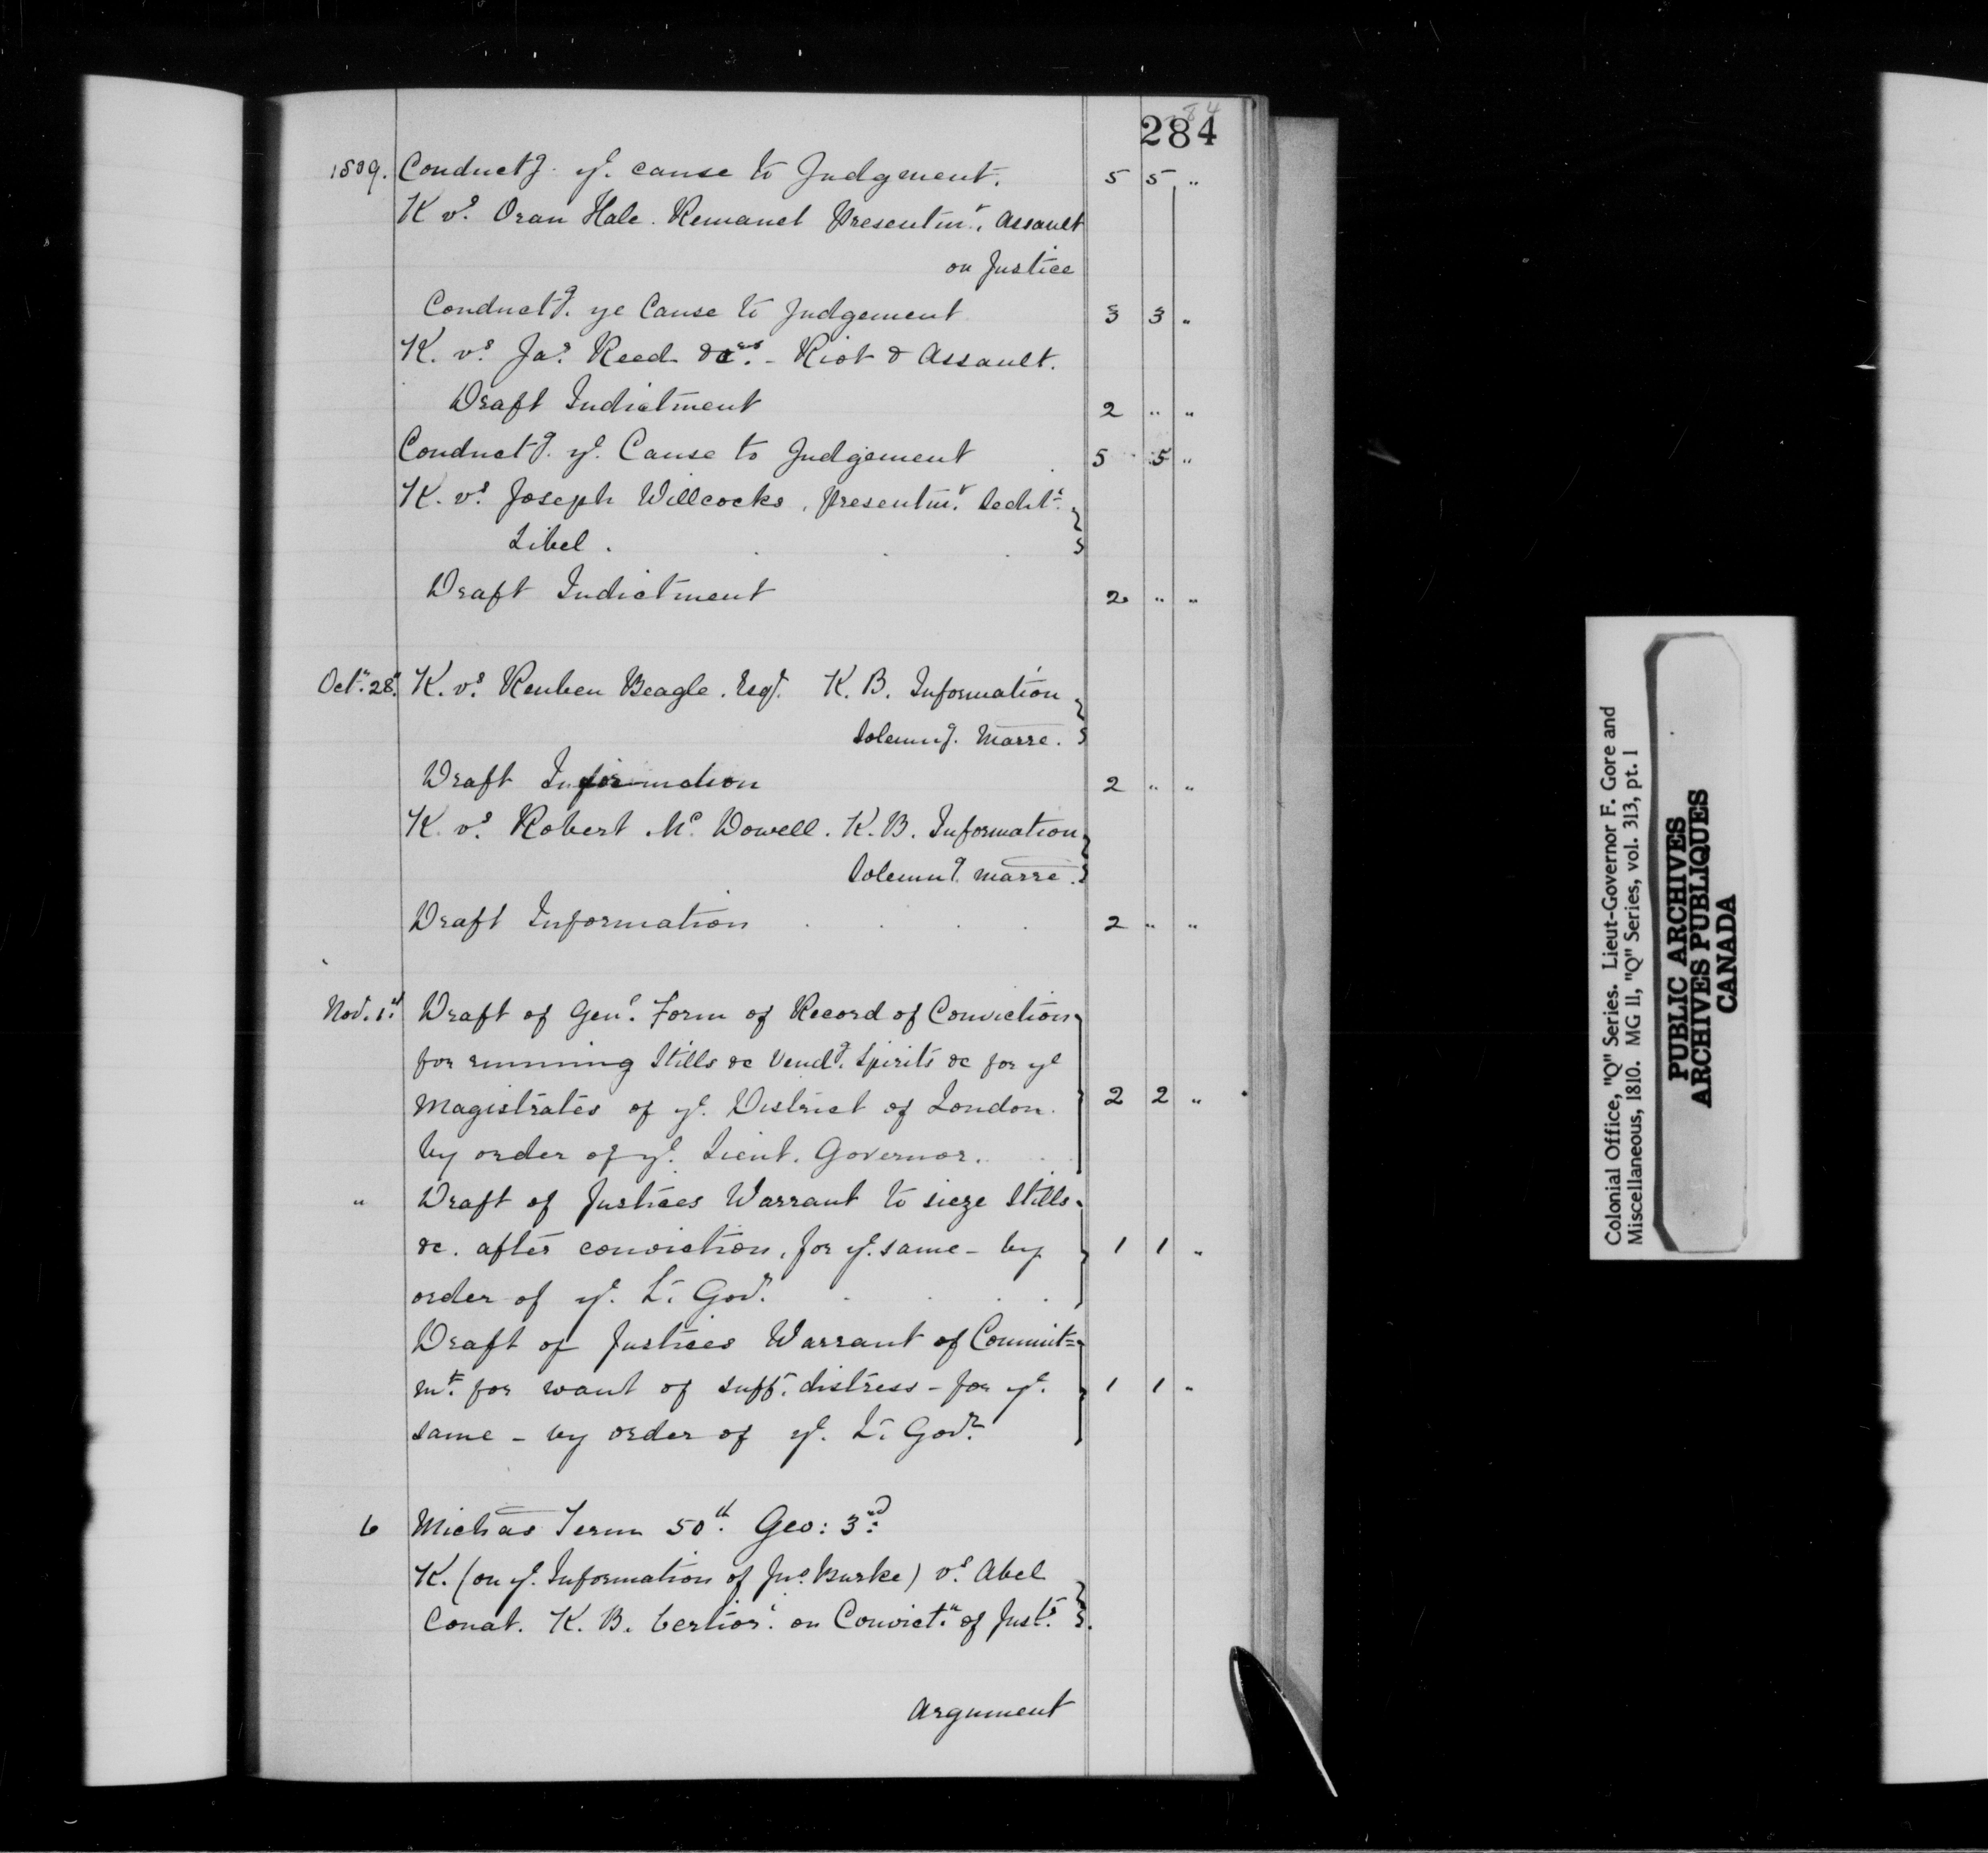 284
1809. Conductg. ye. cause to Judgement. 5 5 "
K vs. Oran Hale. Remanet Presentmt. Assault
on Justice
Conductg. ye Cause to Judgement 3 3 "
K. vs. Jas. Reed &c. - Riot & Assault.
Draft Indictment 2 " "
Conductg. ye. Cause to Judgement 5 5 "
K. vs. Joseph Willcocks, Presentmt. Sedits.
Libel.
Draft Indictment 2 " "
Octr. 28. K. vs. Reuben Beagle. Esqr. K. B. Information
Solemng. Marre.
Draft Information 2 " "
K. vs. Robert Mc. Dowell. K. B. Information
Solemng. marre.
Draft Information 2 " "
Nov. 1st Draft of Genl. Form of Record of Conviction
for running Stills &c Vendg. Spirits &c for ye
Magistrates of ye. District of London. 2 2 "
by order of ye. Lieut. Governor.
" Draft of Justices Warrant to sieze Stills
&c. after conviction, for ye. same - by 1 1 "
order of ye. Lt. Govr.
Draft of Justices Warrant of Commit=
mt. for want of suff. distress - for ye. 1 1 "
same - by order of ye. Lt. Govr.
6 Michas Term 50th. Geo: 3rd.
K. (on ye. Information of Jno. Burke) vs. Abel
Conat. K. B. Certiori. on Convictn. of Justs.
Argument
Colonial Office, "Q" Series. Lieut-Governor F. Gore and
Miscellaneous, 1810. MG 11, "Q" Series, vol. 313, pt. 1
PUBLIC ARCHIVES
ARCHIVES PUBLIQUES
CANADA